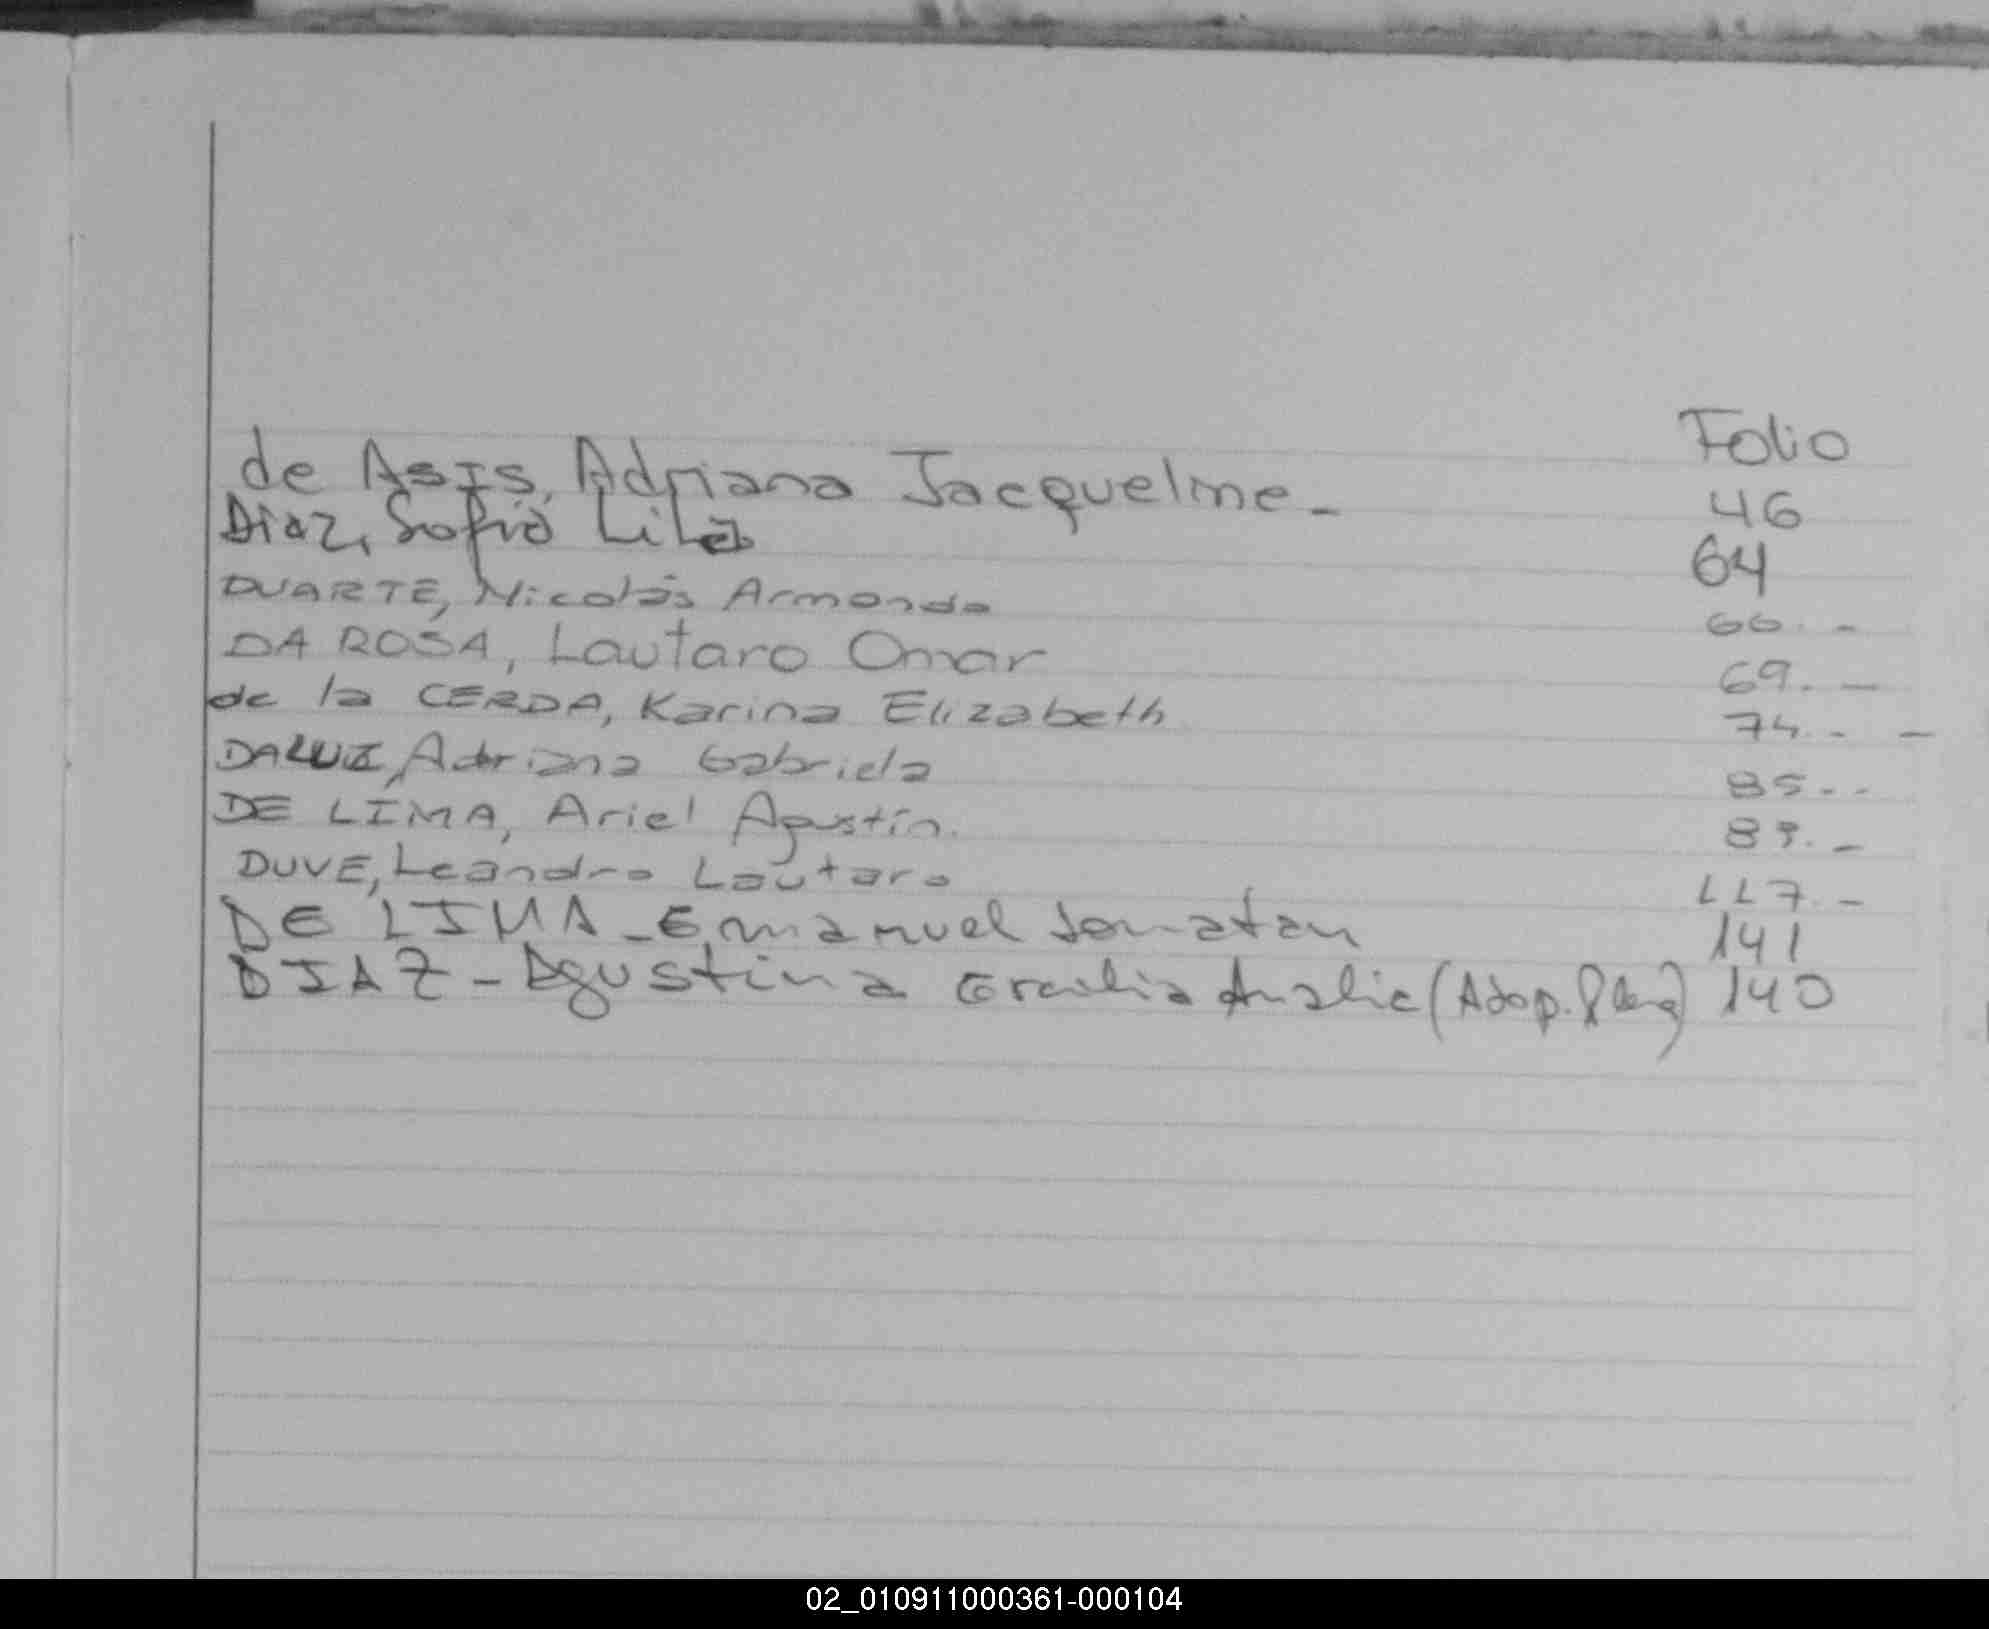 Folio
de Asis, Adriana Jacqueline - 46
Diaz, Sofia Lila 64
DUARTE, Nicolás Armando 66. -
DA ROSA, Lautaro Omar 69. -
de la CERDA, Karina Elizabeth 74. - -
DALUZ, Adriana Gabriela 85 - -
DE LIMA, Ariel Agustín. 89. -
DUVE, Leandro Lautaro 117. -
DE LIMA - Emanuel Jonatan 141
DIAZ - Agustina Analia (Adop. Plena) 140
02_010911000361-000104